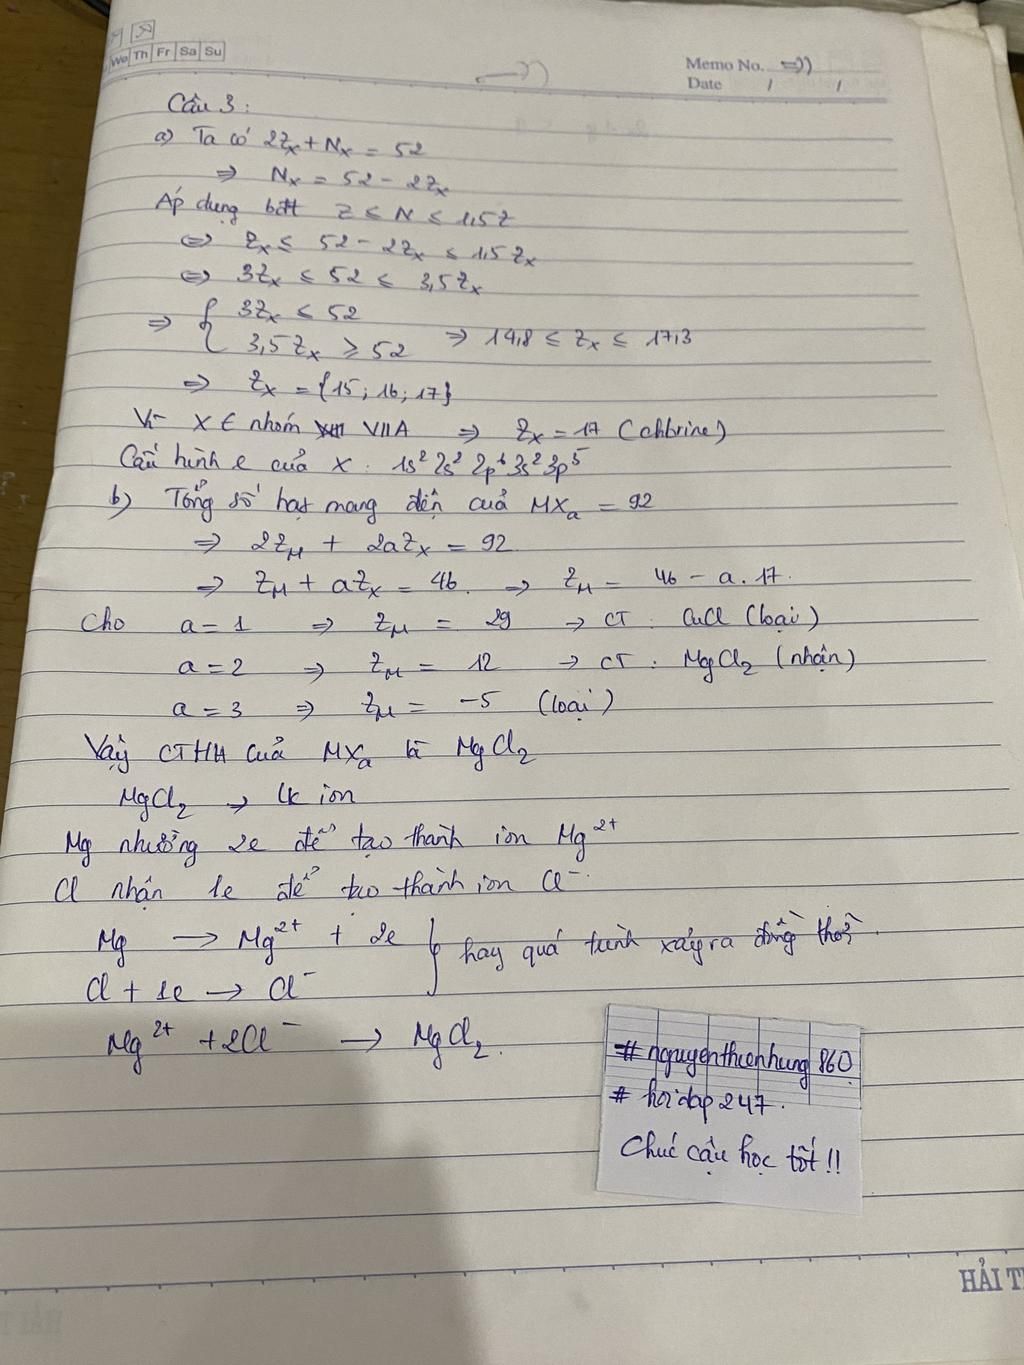 We Th Fr Sa Su
Memo No. =))
Date / /
Câu 3:
a) Ta có 2Zx + Nx = 52
=> Nx = 52 - 2Zx
Áp dụng bđt Z ≤ N ≤ 1,5Z
<=> Zx ≤ 52 - 2Zx ≤ 1,5Zx
<=> 3Zx ≤ 52 ≤ 3,5Zx
=> { 3Zx ≤ 52
3,5Zx ≥ 52 => 14,8 ≤ Zx ≤ 17,3
=> Zx = {15; 16; 17}
Vì X ∈ nhóm VIIA => Zx = 17 (chlorine)
Cấu hình e của X: 1s² 2s² 2p⁶ 3s² 3p⁵
b) Tổng số hạt mang điện của MXₐ = 92
=> 2Z_M + 2aZx = 92
=> Z_M + aZx = 46. => Z_M = 46 - a.17.
Cho a = 1 => Z_M = 29 -> CT: CuCl (loại)
a = 2 => Z_M = 12 -> CT: MgCl₂ (nhận)
a = 3 => Z_M = -5 (loại)
Vậy CTHH của MXₐ là MgCl₂
MgCl₂ -> lk ion
Mg nhường 2e để tạo thành ion Mg²⁺
Cl nhận 1e để tạo thành ion Cl⁻.
Mg -> Mg²⁺ + 2e } hay quá trình xảy ra đồng thời.
Cl + 1e -> Cl⁻
Mg²⁺ + 2Cl⁻ -> MgCl₂.
# nguyenthienhung860.
# hoidap247.
Chúc cậu học tốt!!
HẢI T